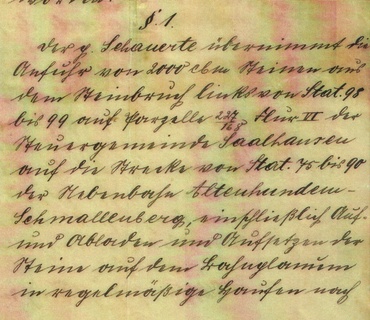 §. 1.
Der p. Schauerte übernimmt die
Anfuhr von 2000 cbm Steinen aus
dem Steinbruch links von Stat. 98
bis 99 auf Parzelle 227/163, Flur VI der
Steuergemeinde Saalhausen
auf die Strecke von Stat. 75 bis 90
der Nebenbahn Altenhundem-
Schmallenberg, einschließlich Auf-
und Abladen und Aufsetzen der
Steine auf dem Bahnplanum
in regelmäßige Haufen nach